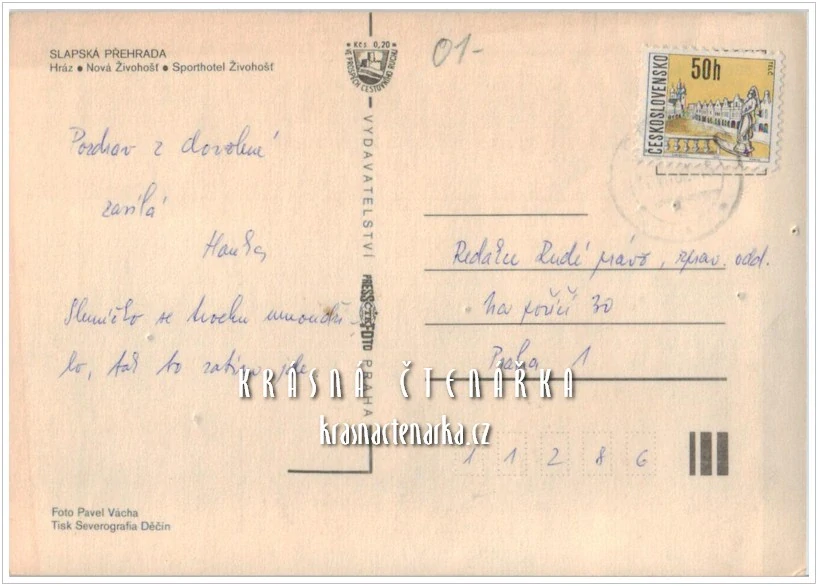 SLAPSKÁ PŘEHRADA
Hráz • Nová Živohošť • Sporthotel Živohošť
Pozdrav z dovolené
zasílá
Hanka
Sluníčko se trochu umoudři-
lo, tak to zatím jde.
Foto Pavel Vácha
Tisk Severografia Děčín
Kčs 0,20
VE PROSPĚCH CESTOVNÍHO RUCHU
VYDAVATELSTVÍ
PRESSFOTO
ČTK
PRAHA
01-
ČESKOSLOVENSKO
50h
TELČ
Redakce Rudé právo, zprav. odd.
Na poříčí 30
Praha 1
11286
KRÁSNÁ ČTENÁŘKA
krasnactenarka.cz